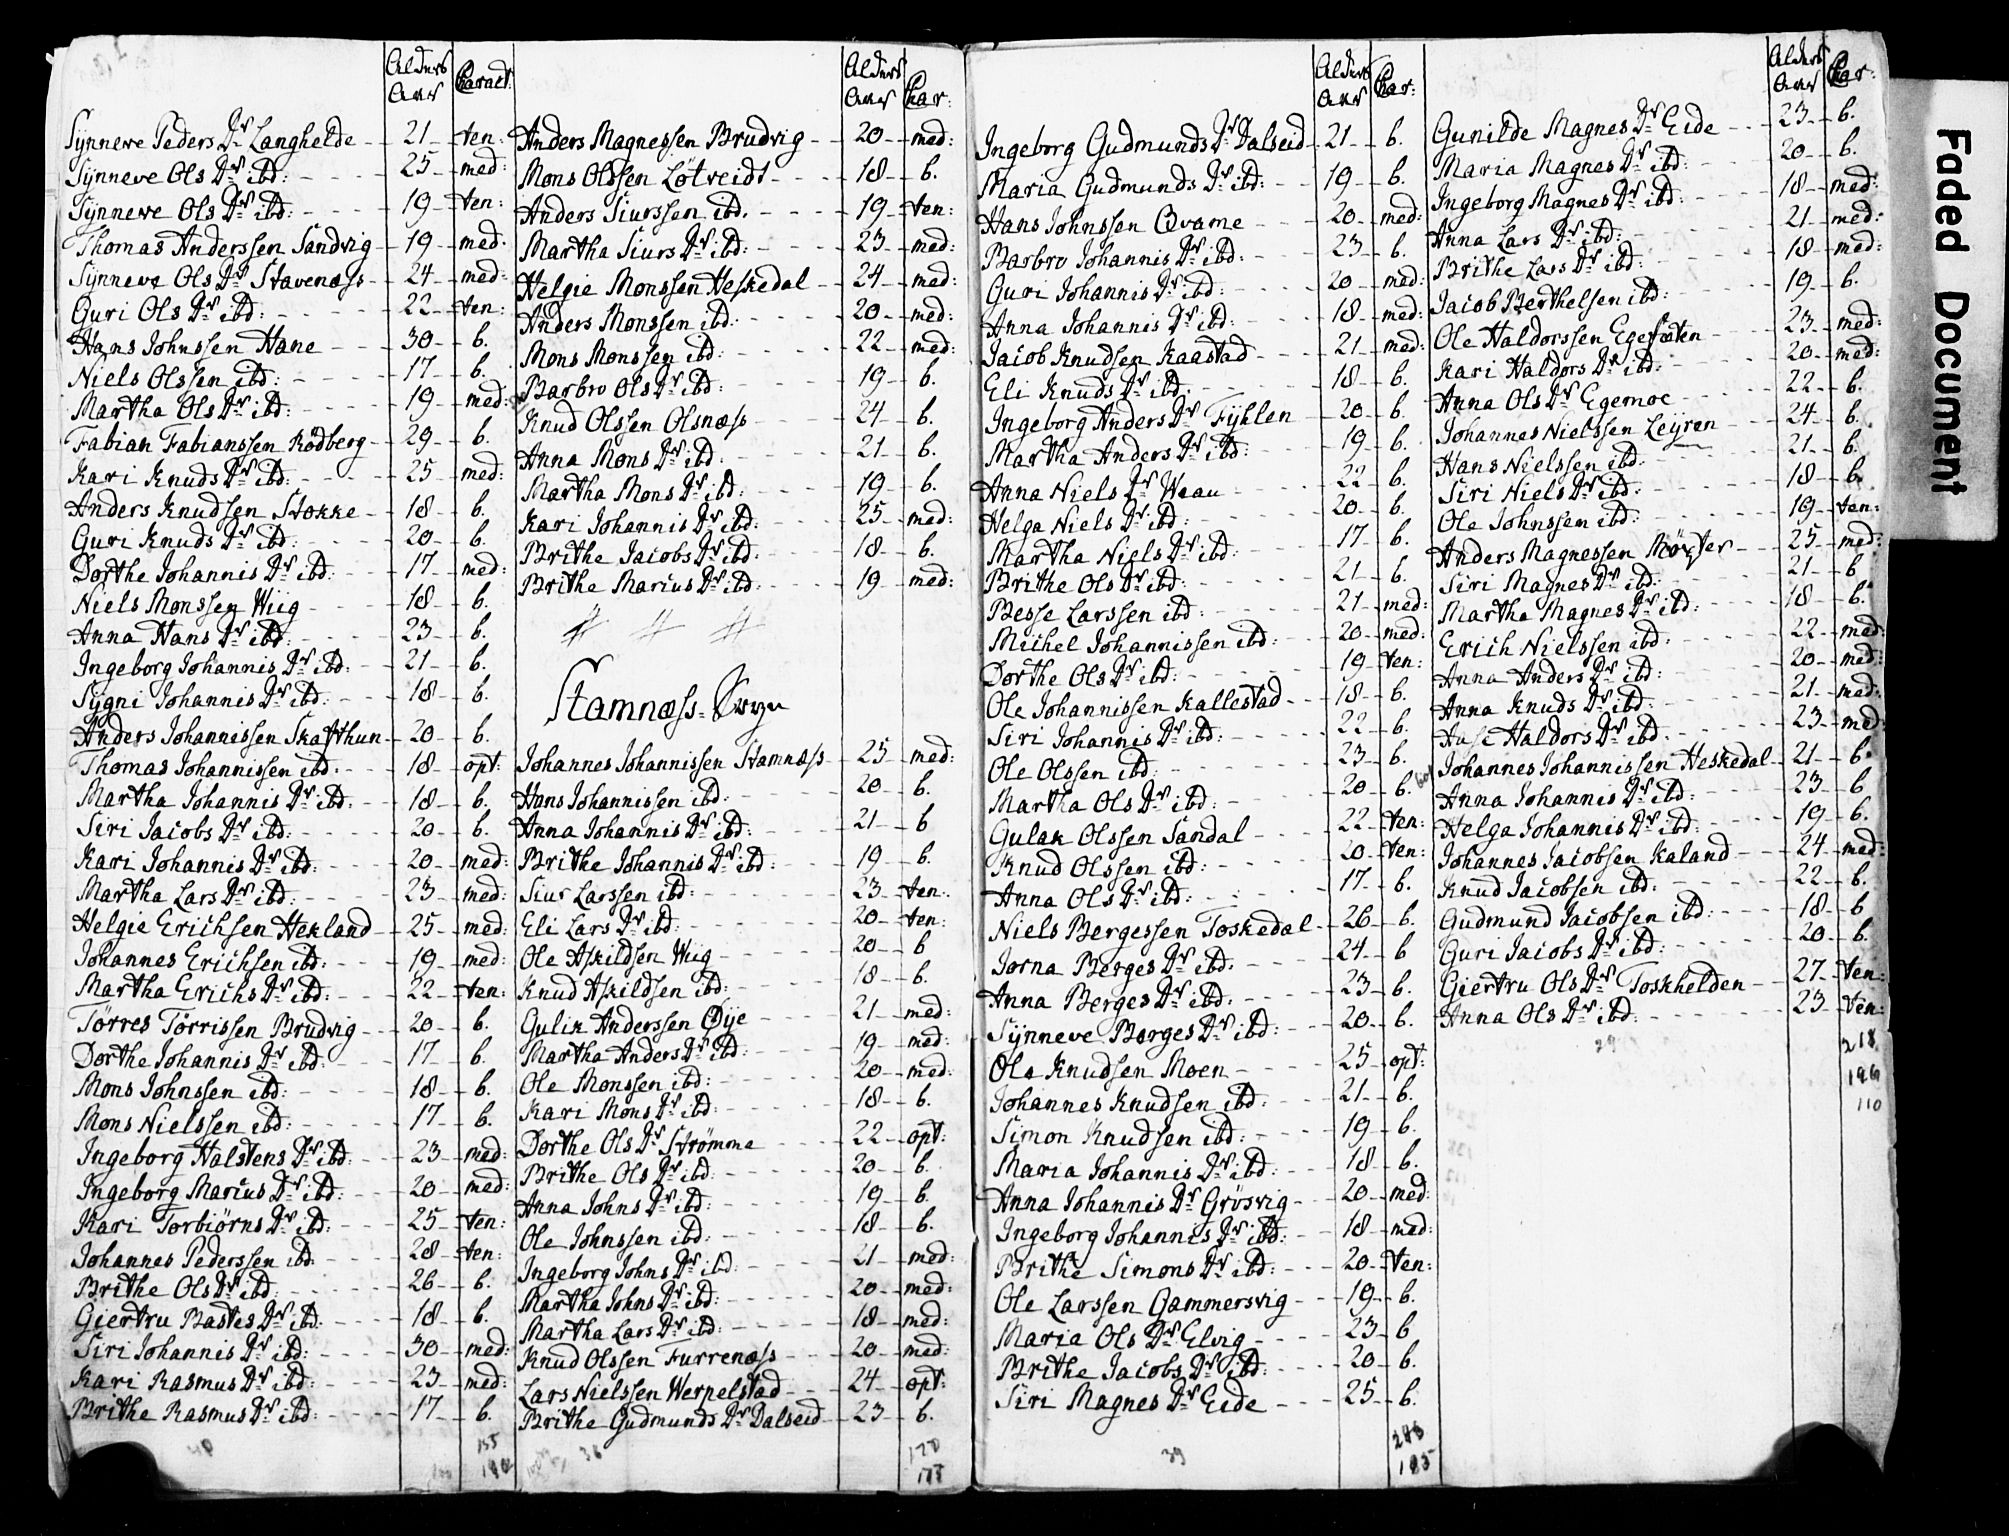 Alders Aar Charact:
Synneve Peders Dr Langhelde 21 ten:
Synneve Ols Dr ibd: 25 med:
Synneve Ols Dr ibd: 19 ten:
Thomas Anderssen Sandvig 19 med:
Synneve Ols Dr Stavenæss 24 med:
Guri Ols Dr ibd: 22 ten:
Hans Johnssen Hane 30 b.
Niels Olssen ibd: 17 b.
Martha Ols Dr ibd: 19 med:
Fabian Fabianssen Rödberg 29 b.
Kari Knuds Dr ibd: 25 med:
Anders Knudsen Stokke 18 b.
Guri Knuds Dr ibd: 20 b.
Dorthe Johannis Dr ibd: 17 med:
Niels Monssen Wiig 18 b.
Anna Hans Dr ibd: 23 b.
Ingeborg Johannis Dr ibd: 21 b.
Sygni Johannis Dr ibd: 18 b.
Anders Johannissen Skafthun 20 b.
Thomas Johannissen ibd. 18 opt:
Martha Johannis Dr ibd. 18 b.
Siri Jacobs Dr ibd: 20 b.
Kari Johannis Dr ibd: 20 med:
Martha Lars Dr ibd: 23 med:
Helgie Erichsen Hekland 25 med:
Johannes Erichsen ibd: 19 med:
Martha Erichs Dr ibd: 22 ten:
Törres Törrissen Brudvig 20 b.
Dorthe Johannis Dr ibd: 17 b.
Mons Johnssen ibd: 18 b.
Mons Nielssen ibd: 17 b.
Ingeborg Halstens Dr ibd: 23 med:
Ingeborg Marius Dr ibd: 20 med:
Kari Torbiörns Dr ibd: 25 ten:
Johannes Pederssen ibd: 28 ten:
Brithe Ols Dr ibd: 26 b.
Giertru Bastes Dr ibd. 18 b.
Siri Johannis Dr ibd: 30 med:
Kari Rasmus Dr ibd: 23 med:
Brithe Rasmus Dr ibd: 17 b.
40
155
Alders Aar Char:
Anders Magnessen Brudvig 20 med:
Mons Olssen Lötveidt 18 b.
Anders Siurssen ibd. 19 ten:
Martha Siurs Dr ibd: 23 med:
Helgie Monssen Heskedal 24 med:
Anders Monssen ibd: 20 med:
Mons Monssen ibd: 22 med:
Barbro Ols Dr ibd: 19 b.
Knud Olssen Olsnæss 24 b.
Anna Mons Dr ibd: 21 b.
Martha Mons Dr ibd: 19 b.
Kari Johannis Dr ibd: 25 med:
Brithe Jacobs Dr ibd: 18 b.
Brithe Marius Dr ibd: 19 med:
Stamnæss-Sogn
Johannes Johannissen Stamnæss 25 med:
Hans Johannissen ibd: 20 b.
Anna Johannis Dr ibd: 21 b
Brithe Johannis Dr ibd: 19 b.
Siur Larssen ibd: 23 ten:
Eli Lars Dr ibd: 20 ten:
Ole Askildsen Wiig 20 b
Knud Askildsen ibd: 18 b.
Gulik Anderssen Øye 21 med:
Martha Anders Dr ibd: 19 med:
Ole Monssen ibd: 20 med:
Kari Mons Dr ibd: 18 b.
Dorthe Ols Dr Strömme 22 opt:
Brithe Ols Dr ibd: 20 b.
Anna Johns Dr ibd: 19 b.
Ole Johnssen ibd: 18 b.
Ingeborg Johns Dr ibd: 21 med:
Martha Johns Dr ibd: 20 med:
Martha Lars Dr ibd: 18 med:
Knud Olssen Furrenæss 20 med:
Lars Nielssen Wernelstad 24 opt:
Brithe Gudmunds Dr Dalseid 23 b.
36
Alders Aar Char:
Ingeborg Gudmunds Dr Dalseid 21 b.
Maria Gudmunds Dr ibd: 19 b.
Hans Johnssen Qvame 20 med:
Barbro Johannis Dr ibd: 23 b.
Guri Johannis Dr ibd: 20 med:
Anna Johannis Dr ibd: 18 med:
Jacob Knudsen Kaastad 21 med:
Eli Knuds Dr ibd. 18 b.
Ingeborg Anders Dr Fyhlen 20 b.
Martha Anders Dr ibd: 19 b.
Anna Niels Dr Waau 22 b.
Helga Niels Dr ibd: 20 b.
Martha Niels Dr ibd: 17 b.
Brithe Ols Dr ibd: 21 b.
Besse Larssen ibd: 21 med:
Michel Johannissen ibd: 20 med:
Dorthe Ols Dr ibd: 19 ten:
Ole Johannissen Kallestad 18 b.
Siri Johannis Dr ibd: 22 b.
Ole Olssen ibd: 23 b.
Martha Ols Dr ibd: 20 b.
Gulak Olssen Sandal 22 ten:
Knud Olssen ibd: 20 ten:
Anna Ols Dr ibd: 17 b.
Niels Bergessen Toskedal 26 b.
Jorna Berges Dr ibd. 24 b
Anna Berges Dr ibd. 23 b.
Synneve Berges Dr ibd: 20 b.
Ole Knudsen Moen 25 opt:
Johannes Knudsen ibd: 21 b.
Simon Knudsen ibd: 19 b.
Maria Johannis Dr ibd: 18 b.
Anna Johannis Dr Grösvig 20 med:
Ingeborg Johannis Dr ibd: 18 med:
Brithe Simons Dr ibd: 20 ten:
Ole Larssen Gammersvig 19 b.
Maria Ols Dr Elvig 23 b
Brithe Jacobs Dr ibd: 20 b.
Siri Magnes Dr Eide 25 b.
39
185
Alders Aar Char:
Gunilde Magnes Dr Eide 23 b.
Maria Magnes Dr ibd: 20 b.
Ingeborg Magnes Dr ibd: 18 med:
Anna Lars Dr ibd: 21 med:
Brithe Lars Dr ibd: 18 med:
Jacob Berthelsen ibd: 19 b.
Ole Haldorssen Egesæten 23 med:
Kari Haldors Dr ibd: 20 med:
Anna Ols Dr Egemoe 22 b.
Johannes Nielssen Leyren 24 b.
Hans Nielssen ibd. 21 b.
Siri Niels Dr ibd: 18 b.
Ole Johnssen ibd: 19 ten:
Anders Magnessen 25 med:
Siri Magnes Dr ibd: 21 b
Martha Magnes Dr ibd: 18 b.
Erich Nielssen ibd: 22 med:
Anna Anders Dr ibd: 20 med:
Anna Knuds Dr ibd: 21 med:
Haldors Dr ibd: 23 med
Johannes Johannissen Heskedal 21 b.
Anna Johannis Dr ibd: 23 b
Helga Johannis Dr ibd: 19 b.
Johannes Jacobsen Kaland 24 med:
Knud Jacobsen ibd: 22 b.
Gudmund Jacobsen ibd: 18 b
Guri Jacobs Dr ibd: 20 b.
Giertru Ols Dr Toskhelden 27 ten:
Anna Ols Dr ibd: 23 ten:
29
218
110
Faded Document